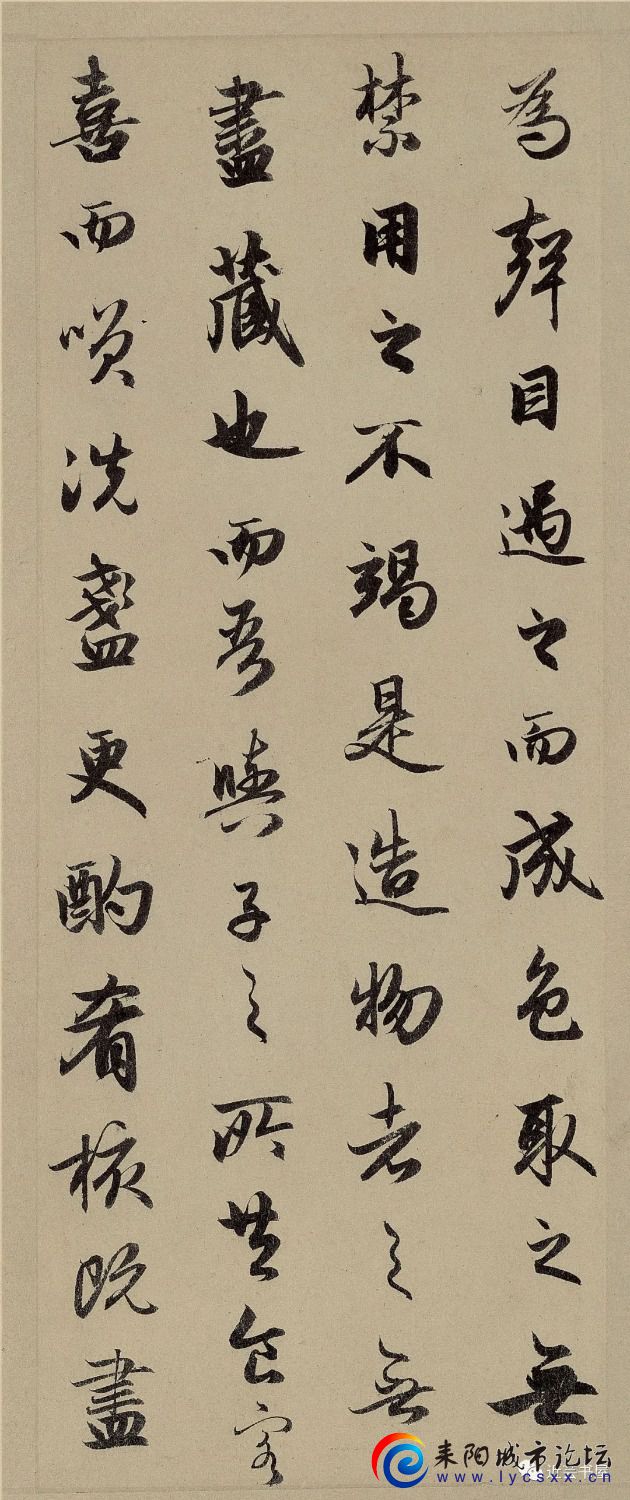 為聲目遇之而成色取之無
禁用之不竭是造物者之無
盡藏也而吾與子之所共食客
喜而咲洗盞更酌肴核既盡
耒阳城市论坛
www.lycsxx.cn
书屋